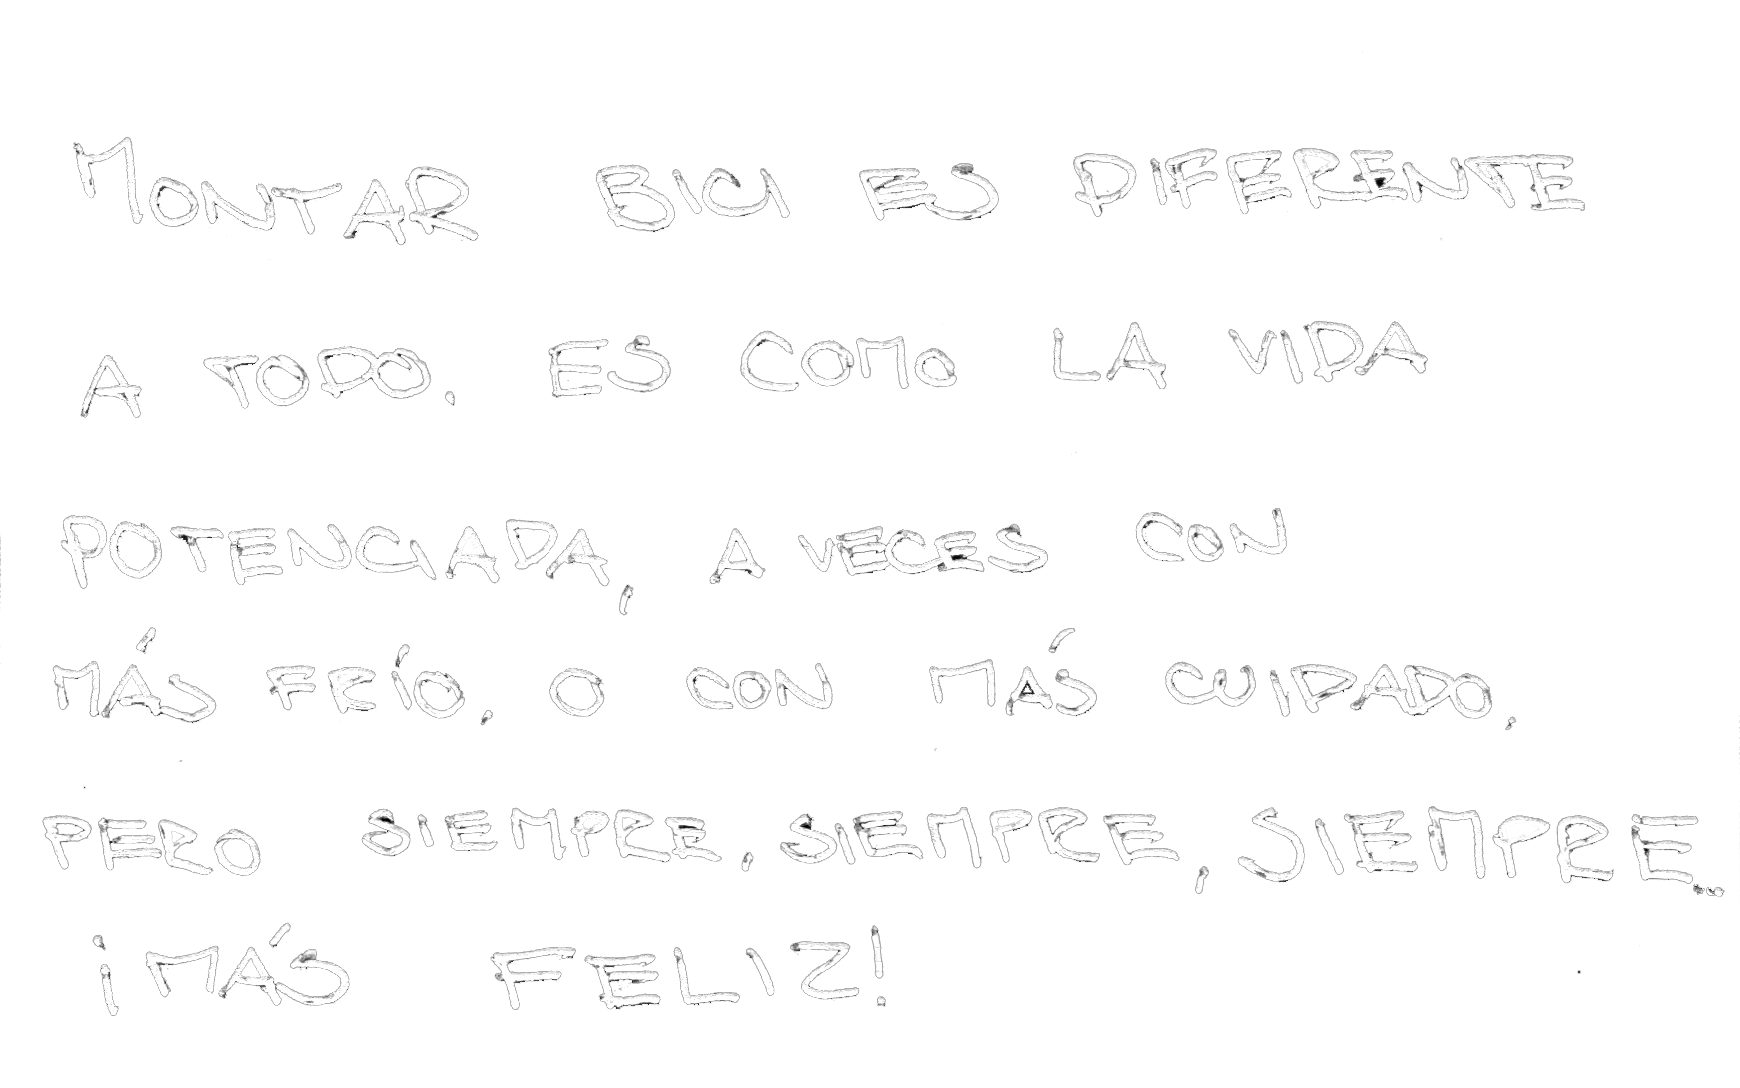 MONTAR BICI ES DIFERENTE
A TODO. ES COMO LA VIDA
POTENCIADA, A VECES CON
MÁS FRÍO, O CON MÁS CUIDADO,
PERO SIEMPRE, SIEMPRE, SIEMPRE...
¡MÁS FELIZ!